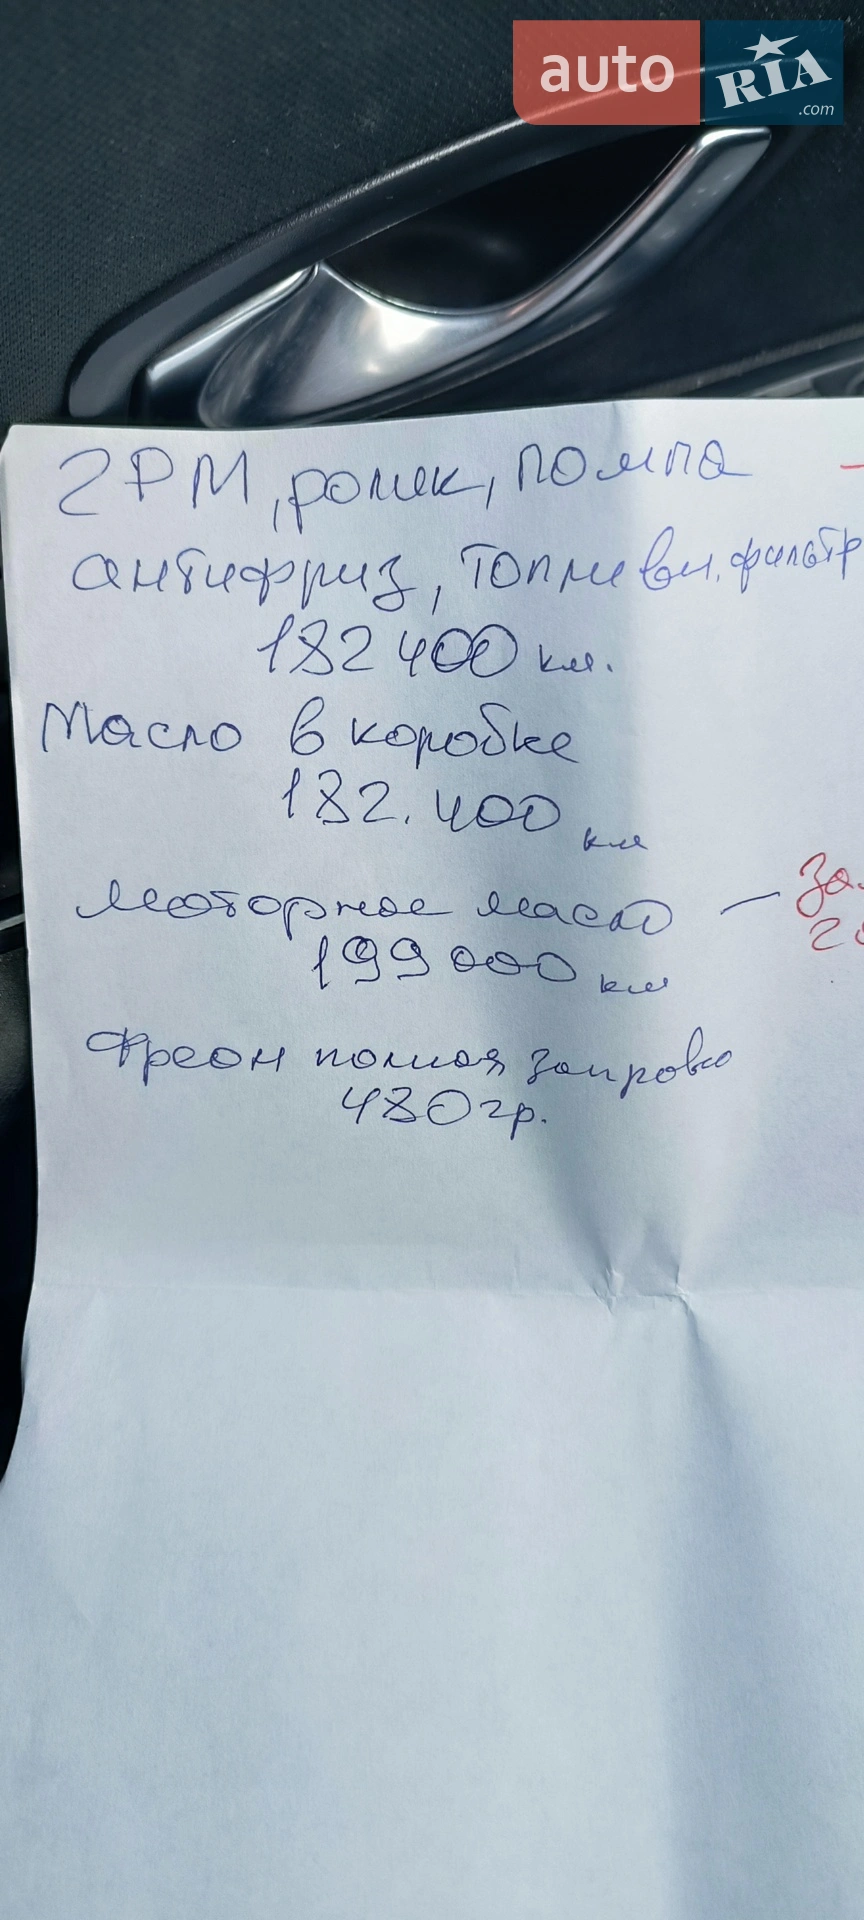 auto RIA.com
ГРМ, ролик, помпа
антифриз, топливн. фильтр
182 400 км.
Масло в коробке
182. 400 км
Моторное масло –
199 000 км
Фреон полная запровка
480 гр.